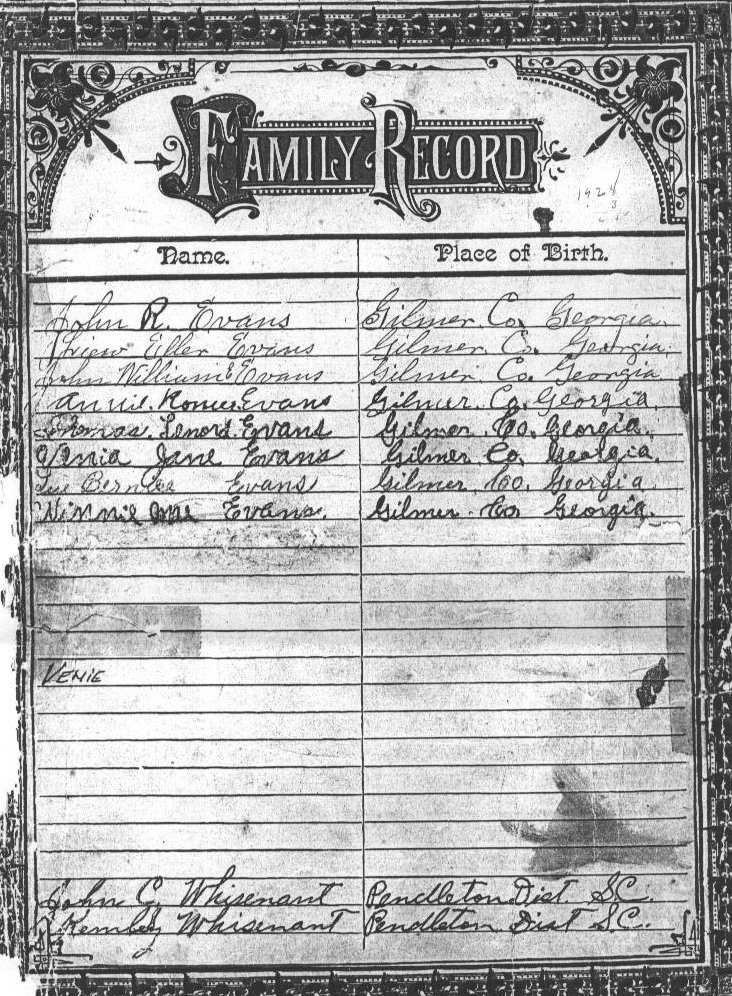 FAMILY RECORD
1928
3
Name. Place of Birth.
John R. Evans Gilmer. Co. Georgia.
Eller Evans Gilmer. Co. Georgia.
John William Evans Gilmer. Co. Georgia
Annie. Evans Gilmer. Co. Georgia.
Thomas. Lenord. Evans Gilmer. Co. Georgia.
Venia Jane Evans Gilmer. Co. Georgia.
Evans Gilmer. Co. Georgia.
Winnie Evans. Gilmer. Co Georgia.
VENIE
John C. Whisenant Pendleton Dist. S.C.
Whisenant Pendleton Dist S.C.